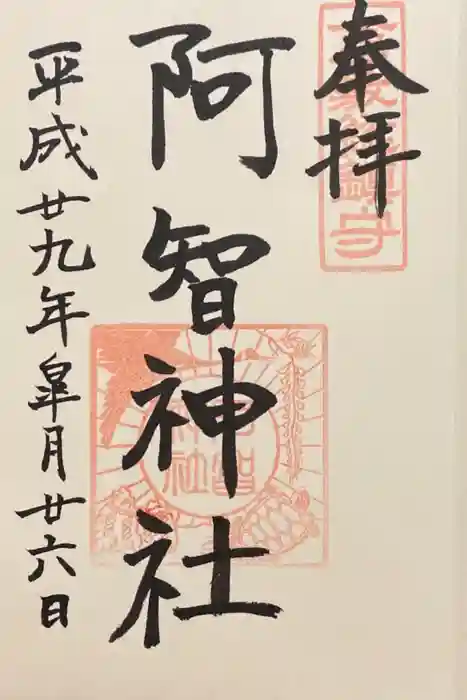 奉拝
阿智神社
平成廿九年皐月廿六日
阿智神社